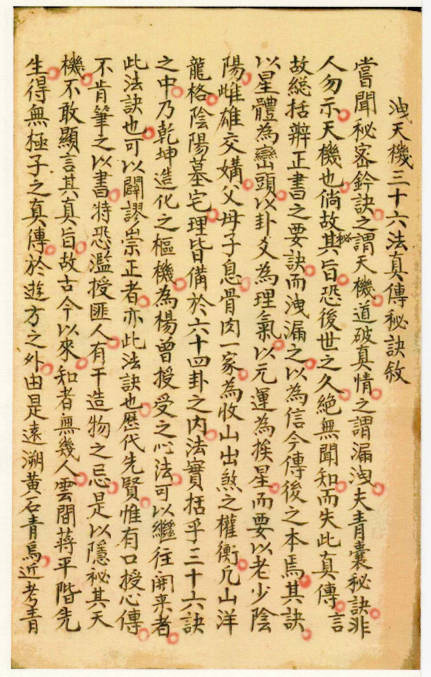 洩天機三十六法真傳秘訣敘
嘗聞秘密鈐訣之謂天機道破真情之謂漏洩夫青囊秘訣非
人勿示天機也倘故秘其旨恐後世之久絕無聞知而失此真傳言
故総括辨正書之要訣而洩漏之以為信今傳後之本焉其訣
以星體為巒頭以卦爻為理氣以元運為挨星而要以老少陰
陽雌雄交媾父母子息骨肉一家為收山出煞之權衡凡山洋
龍格陰陽墓宅理皆備於六十四卦之內法實括乎三十六訣
之中乃乾坤造化之樞機為楊曾授受之心法可以繼往開來者
此法訣也可以闢謬崇正者亦此法訣也歷代先賢惟有口授心傳
不肯筆之以書特恐濫授匪人有干造物之忌是以隱秘其天
機不敢顯言其真旨故古今以來知者無幾人雲間蔣平階先
生得無極子之真傳於遊方之外由是遠溯黃石青烏近考青